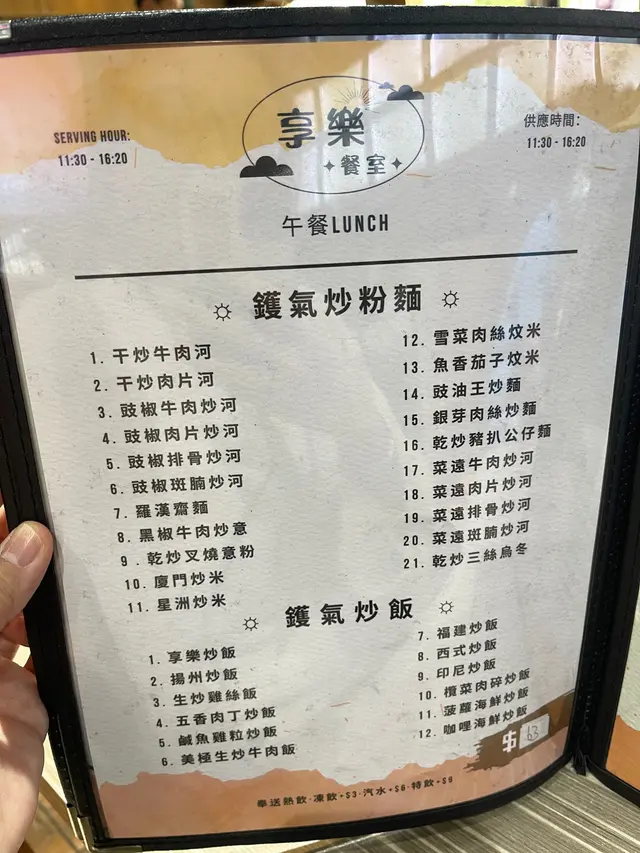 SERVING HOUR:
11:30 - 16:20
享樂
餐室
供應時間:
11:30 - 16:20
午餐LUNCH
鑊氣炒粉麵
1. 干炒牛肉河
2. 干炒肉片河
3. 豉椒牛肉炒河
4. 豉椒肉片炒河
5. 豉椒排骨炒河
6. 豉椒斑腩炒河
7. 羅漢齋麵
8. 黑椒牛肉炒意
9. 乾炒叉燒意粉
10. 廈門炒米
11. 星洲炒米
12. 雪菜肉絲炆米
13. 魚香茄子炆米
14. 豉油王炒麵
15. 銀芽肉絲炒麵
16. 乾炒豬扒公仔麵
17. 菜遠牛肉炒河
18. 菜遠肉片炒河
19. 菜遠排骨炒河
20. 菜遠斑腩炒河
21. 乾炒三絲烏冬
鑊氣炒飯
1. 享樂炒飯
2. 揚州炒飯
3. 生炒雞絲飯
4. 五香肉丁炒飯
5. 鹹魚雞粒炒飯
6. 美極生炒牛肉飯
7. 福建炒飯
8. 西式炒飯
9. 印尼炒飯
10. 欖菜肉碎炒飯
11. 菠蘿海鮮炒飯
12. 咖哩海鮮炒飯
$ 63
奉送熱飲·凍飲+$3·汽水+$6·特飲+$9